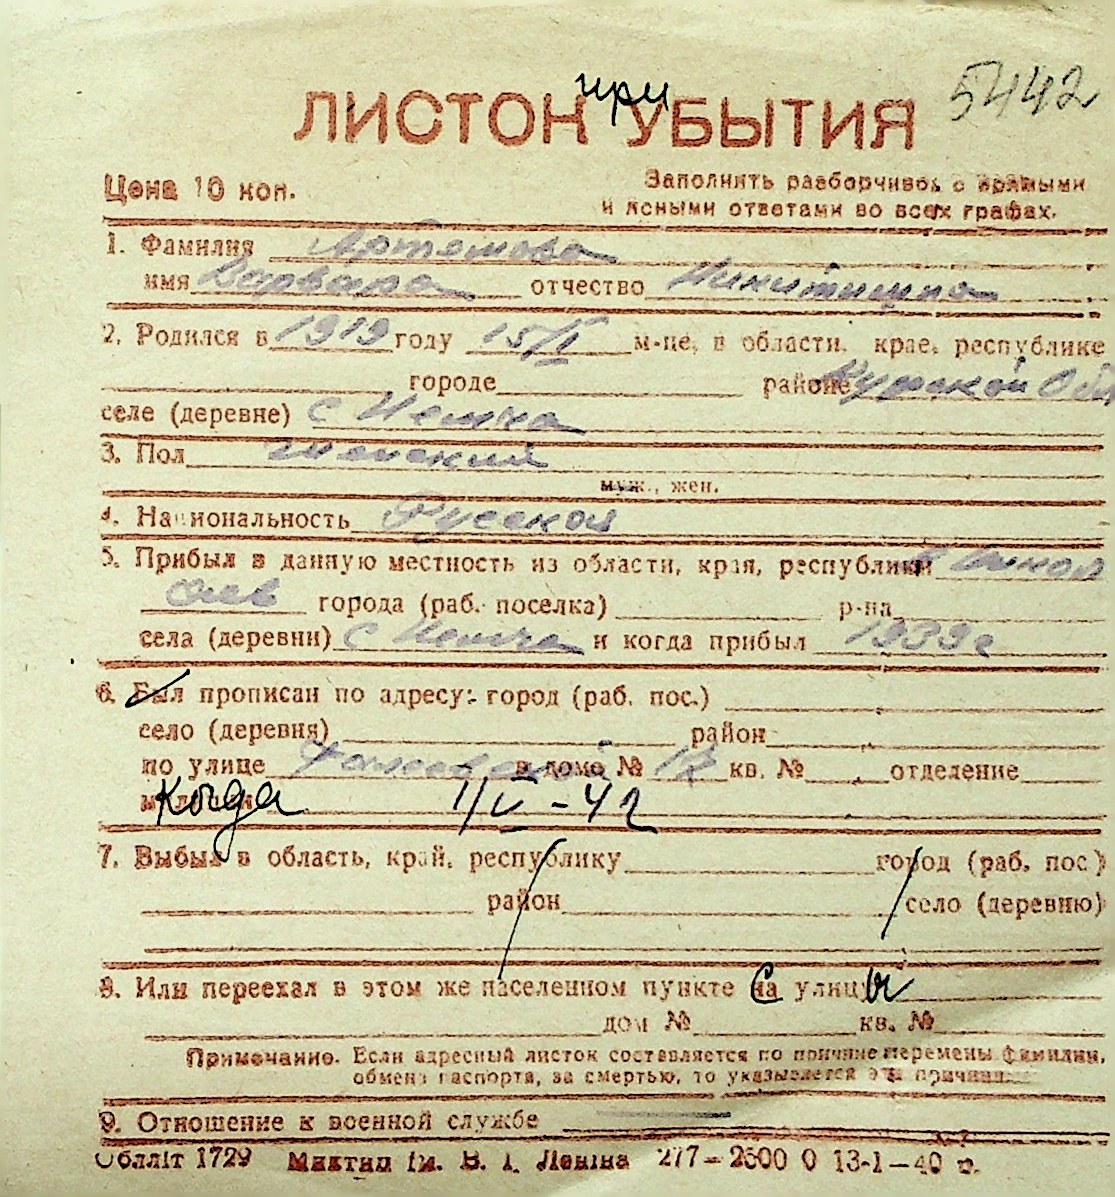 5442
при
ЛИСТОК УБЫТИЯ
Цена 10 коп.
Заполнять разборчиво, с прямыми
и ясными ответами во всех графах.
1. Фамилия Артемова
имя Варвара отчество Никитишна
2. Родился в 1919 году 15/I м-це, в области, крае, республике
городе районе Курской Обл
селе (деревне) с
3. Пол женский
муж., жен.
4. Национальность Русская
5. Прибыл в данную местность из области, края, республики
города (раб. поселка) р-на
села (деревни) с и когда прибыл 1939 г
6. Был прописан по адресу: город (раб. пос.)
село (деревня) район
по улице в доме № 17 кв. № отделение
Когда 1/V - 42
7. Выбыл в область, край, республику город (раб. пос)
район село (деревню)
8. Или переехал в этом же населенном пункте са улицы
дом № кв. №
Примечание. Если адресный листок составляется по причине перемены фамилии,
обмена паспорта, за смертью, то указывается эта причина.
9. Отношение к военной службе
Обллiт 1729 iм. В. I. Ленiна 277—2500 0 13-1—40 р.